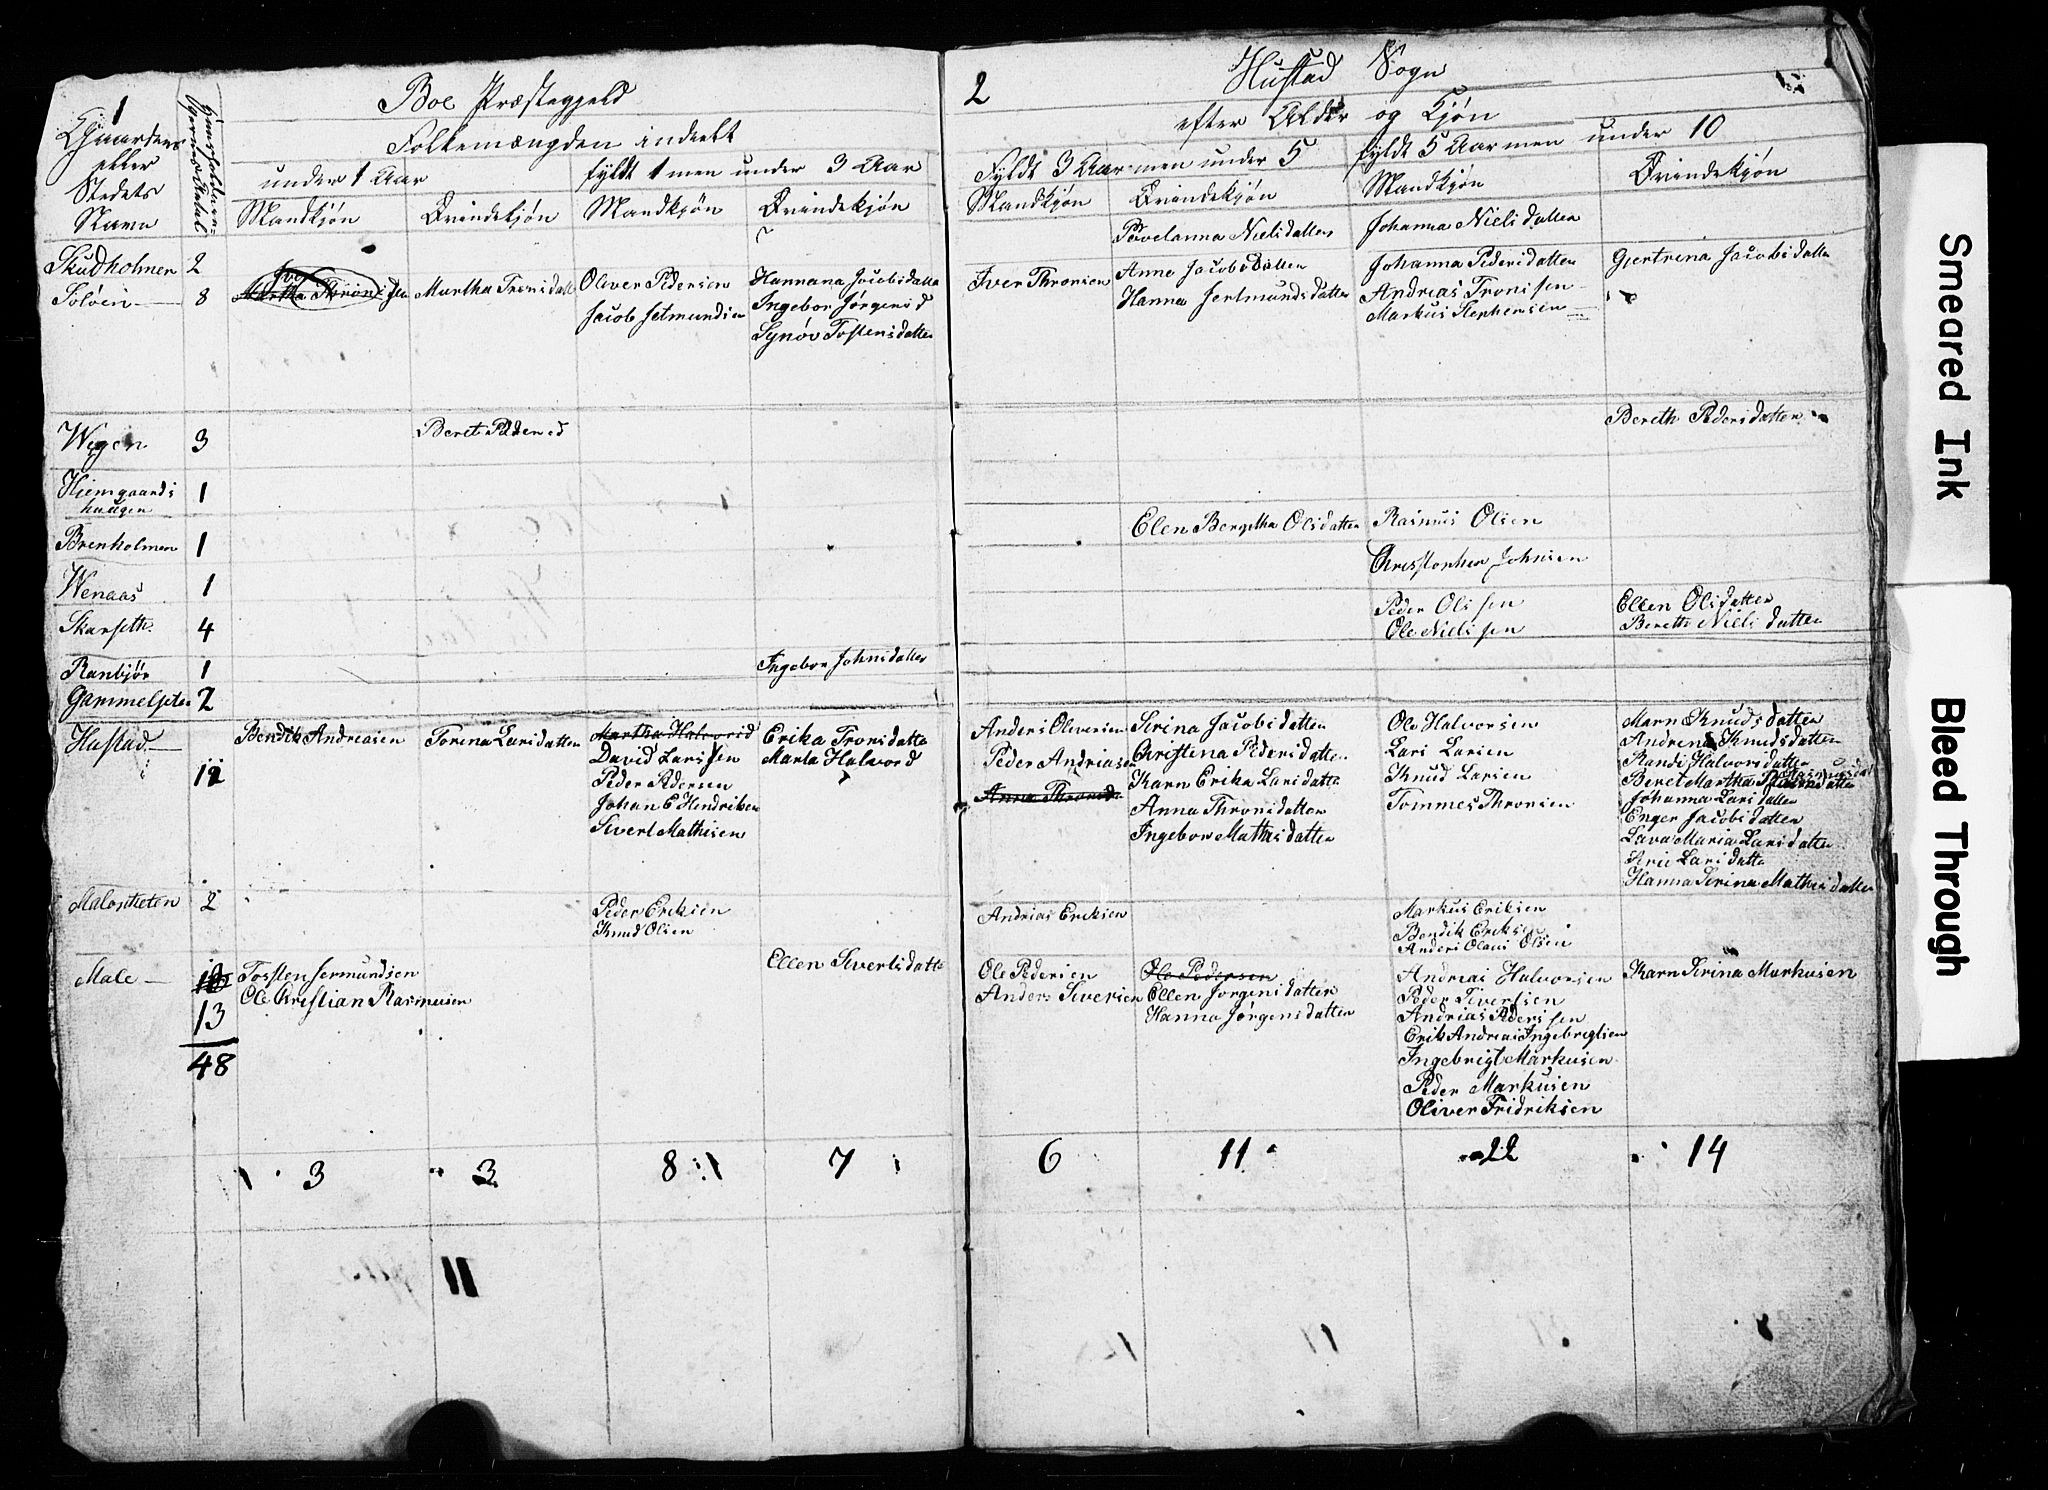 1
Boe Præstegjeld
2
Hustad Sogn
Gaardens eller Stedets Navn
Huusholdningernes Antal
Folkemængden indeelt
efter Alder og Kjøn
under 1 Aar
fyldt 1 men under 3 Aar
Fyldt 3 Aar men under 5
fyldt 5 Aar men under 10
Mandkjøn Qvindekjøn Mandkjøn Qvindekjøn Mandkjøn Qvindekjøn Mandkjøn Qvindekjøn
Skudholmen 2 Povelanna Nielsdatter Johanna Nielsdatter
Soløen 8 Martha Tronsdatt Oliver Pedersen Hannana Jacobsdatte Iver Thronsen Anne Jacobsdatter Johanna Pedersdatter Gjertrina Jacobsdatte
Jacob Jetmundsen Ingebor Jørgensd Hanna Jertmundsdatter Andreas Tronssen
Synøv Tostensdatter Markus Stephensen
Wegen 3 Beret Pedersd Bereth Pedersdatter
Hiemgaards
haugen 1
Elen Bergitha Olsdatter Rasmus Olsen
Brenholmen 1 Christopher Johnsen
Wenaas 1
Skarseth 4 Peder Olssen Ellen Olsdatter
Ole Nielssen Bereth Nielsdatter
Ranbjør 1 Ingebor Johnsdatter
Gammelseter 2
Hustad 12 Bendik Andreasen Torina Larsdatter Martha Halvorsd Erika Tronsdatte Anders Oliversen Serina Jacobsdatter Ole Halvorsen Marn Knudsdatter
David Larssen Marta Halvord Peder Andriasen Christena Pedersdatter Lars Larsen Andrena Knudsdatter
Peder Pedersen Karn Erika Larsdatte Knud Larsen Randi Halvorsdatter
Johan C Hendriksen Anna Throndsd Anna Thronsdatter Tommes Thronsen Beret Martha
Sivert Mathisen Ingebor Mathisdatter Johanna Larsdatter
Enger Jacobsdatter
Lava Maria Larsdatter
Larsdatte
Hanna Serina Mathisdatter
Maloseteten 2 Peder Eriksen Andrias Eriksen Markus Eriksen
Knud Olsen Bendik Eriksen
Anders Olaus Olsen
Male Tossten Jermundsen Ellen Sivertsdatte Ole Pedersen Ole Pedersen Andreas Halvorsen Karn Serina Markusen
13 Ole Kristian Rasmusen Anders Siversen Ellen Jørgensdatter Peder Sivertsen
Hanna Jørgensdatter Andrias Pederssen
Erik Andreas Ingebregtsen
48 Ingebrigt Markusen
Peder Markusen
Oliver Fridriksen
3 3 8 7 6 11 22 14
11
Smeared Ink
Bleed Through